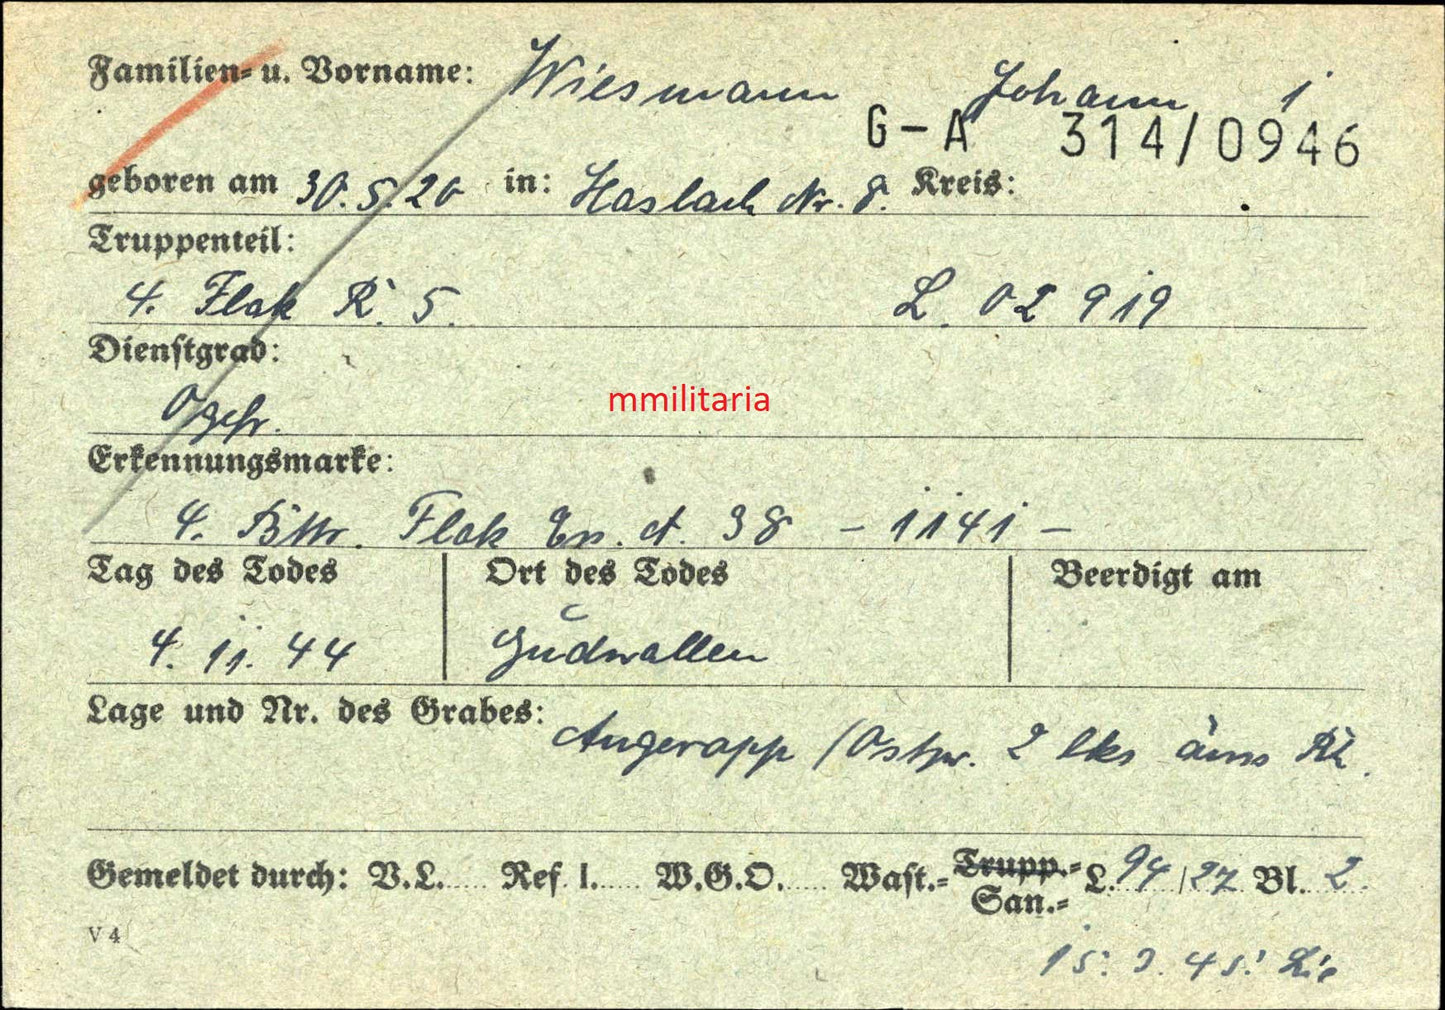 Familien- u. Vorname: Wiesmann Johann 1
G-A 314/0946
geboren am 30.5.20 in: Haslach Nr. 8. Kreis:
Truppenteil:
4. Flak R. 5. L. 02 919
Dienstgrad:
Ogefr.
mmilitaria
Erkennungsmarke:
4. Bttr. Flak Ers. A. 38 – 1141 –
Tag des Todes Ort des Todes Beerdigt am
4. 11. 44 Gudwallen
Lage und Nr. des Grabes: Angerapp /Ostpr. 2 lks
Gemeldet durch: V.L..... Ref. I..... W.G.O..... Wast.- Trupp.- San.- L. 94 /27 Bl. 2.
V 4
15. 3. 45.